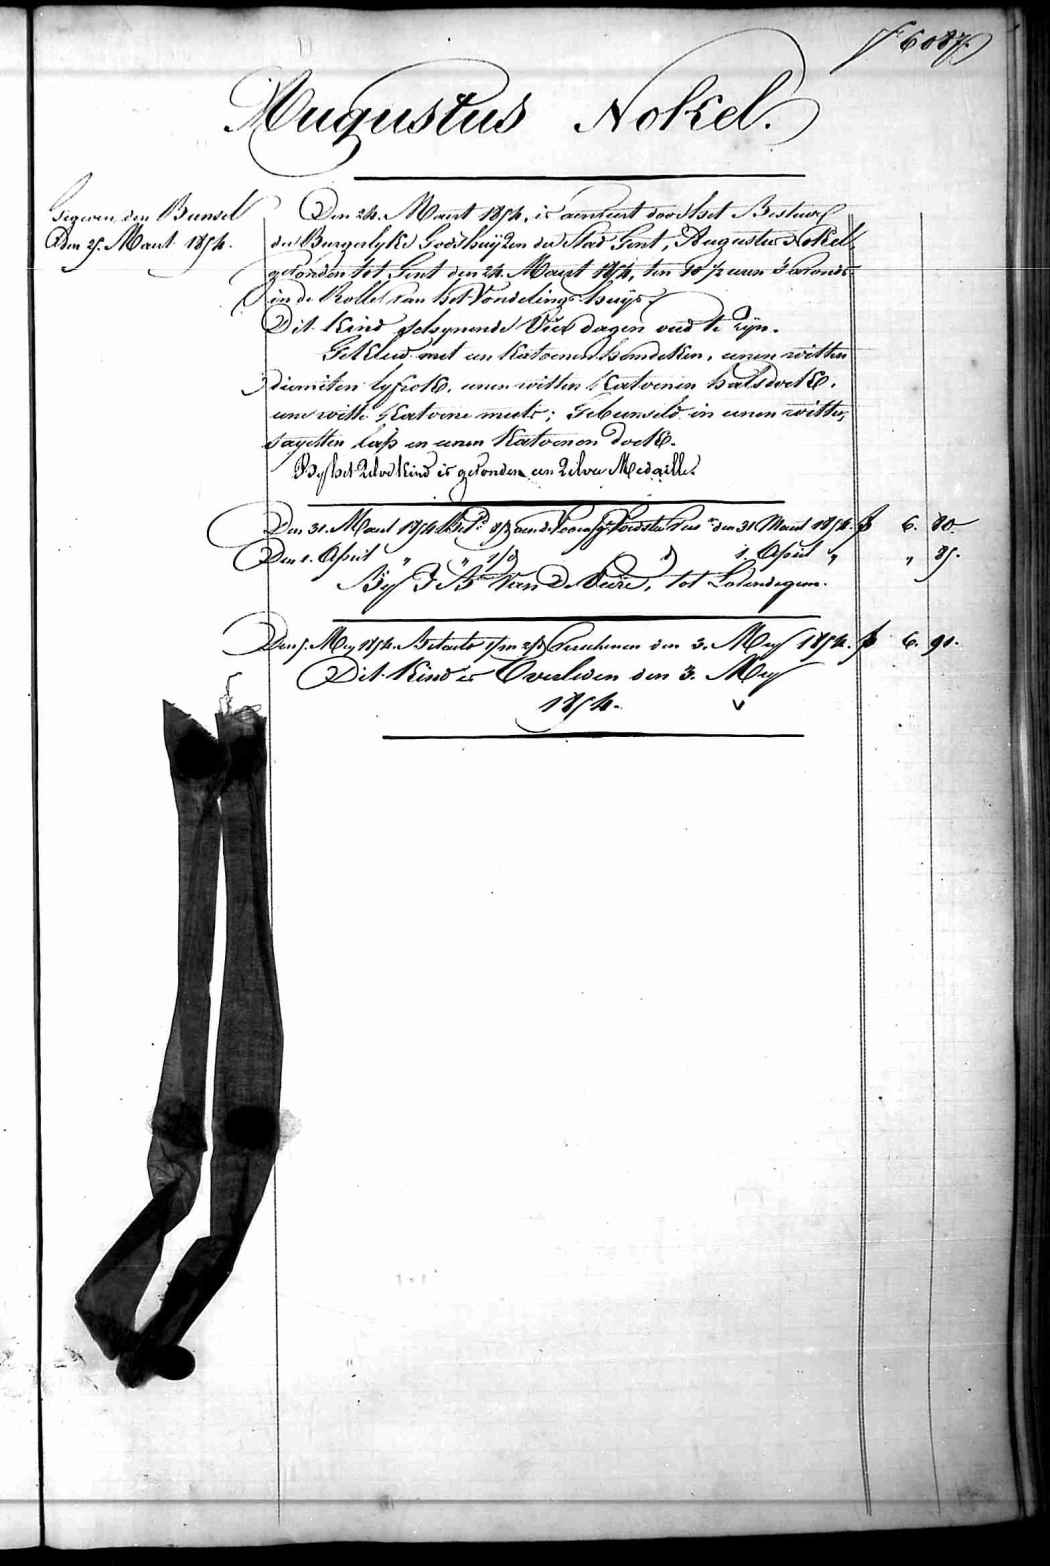 f. 6087
Augustus Nokel.
Gegeven den Bunsel
den 25. Maart 1854.
Den 24. Maart 1854, is aenveert door het Bestuer
der Burgerlyke Godshuyzen der Stad Gent, Augustus Nokel,
gevonden tot Gent den 24. Maart 1854, ten 10 ½ uren 's avonds
in de Rolle van het Vondelings-huys.
Dit Kind schynende Vier dagen oud te zyn.
Gekleed met een Katoenen hemdeken, eenen witten
diemiten lyfrok, eenen witten Katoenen halsdoek,
eene witte Katoene muts; Gebunseld in eenen witten
sayetten lap en eenen Katoenen doek.
By het zelve Kind is gevonden een zilver Medaille.
Den 31. Maart 1854 den 31 Maart 1854. f 6. 80.
Den 1. April " " 1. April " " 85.
By J. B. Van De Veire, tot Lovendegem.
Den 5. Mey 1854. Betaelt verschenen den 3. Mey 1854. f 6. 91.
Dit Kind is Overleden den 3. Mey
1854.